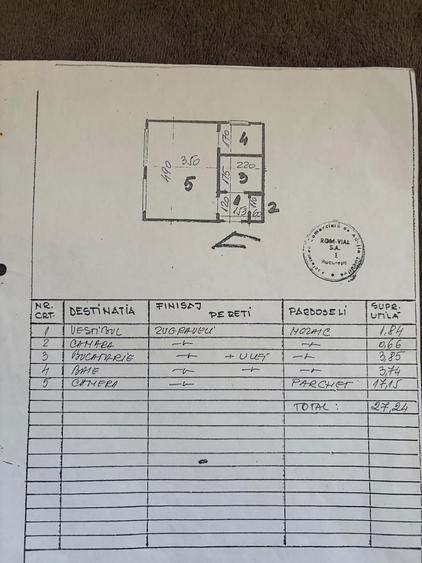 170
4
350
220
490
175
3
5
120
1
150
110
60
2
ROM-VIAL
S.A.
1
Bucuresti
NR. CRT. DESTINATIA FINISAJ PERETI PARDOSELI SUPR. UTILA
1 VESTIBUL ZUGRAVELI MOZAIC 1,84
2 CAMARA -〃- -〃- 0,66
3 BUCATARIE -〃- + ULEI -〃- 3,85
4 BAIE -〃- -〃- -〃- 3,74
5 CAMERA -〃- PARCHET 17,15
TOTAL: 27,24